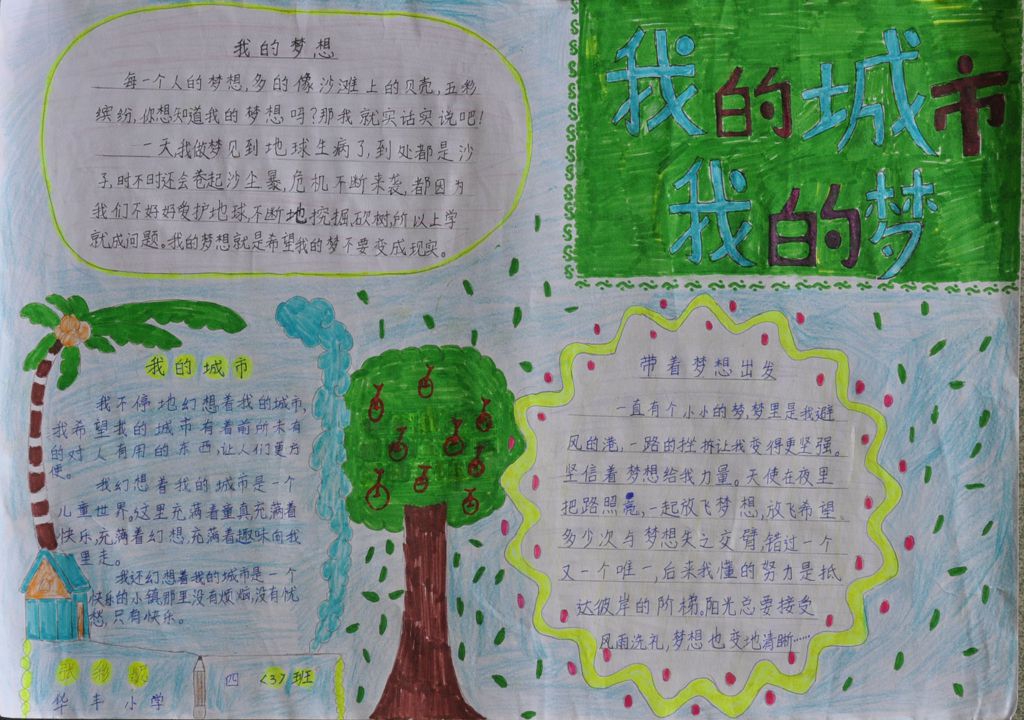 我的城市
我的梦
我的梦想
每一个人的梦想,多的像沙滩上的贝壳,五彩
缤纷,你想知道我的梦想吗?那我就实话实说吧!
一天我做梦见到地球生病了,到处都是沙
子,时不时还会卷起沙尘暴,危机不断来袭,都因为
我们不好好爱护地球,不断地挖掘,砍树,所以上学
就成问题。我的梦想就是希望我的梦不要变成现实。
我的城市
我不停地幻想着我的城市,
我希望我的城市有着前所未有
的对人有用的东西,让人们更方
便。
我幻想着我的城市是一个
儿童世界。这里充满着童真,充满着
快乐,充满着幻想,充满着趣味向我
里走。
我还幻想着我的城市是一个
快乐的小镇,那里没有烦恼,没有忧
愁,只有快乐。
华丰小学
四〈3〉班
带着梦想出发
一直有个小小的梦,梦里是我避
风的港,一路的挫折让我变得更坚强。
坚信着梦想给我力量。天使在夜里
把路照亮,一起放飞梦想,放飞希望。
多少次与梦想失之交臂,错过一个
又一个唯一,后来我懂的努力是抵
达彼岸的阶梯。阳光总要接受
风雨洗礼,梦想也变地清晰……